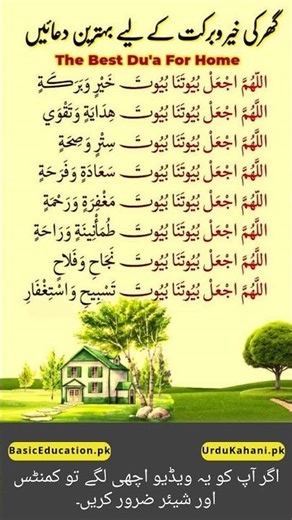 گھر کی خیر و برکت کے لیے بہترین دعائیں
The Best Du'a For Home
اللّٰهُمَّ اجْعَلْ بُيُوتَنَا بُيُوتَ خَيْرٍ وَبَرَكَةٍ
اللَّهُمَّ اجْعَلْ بُيُوتَنَا بُيُوتَ هِدَايَةٍ وَتَقْوَي
اللَّهُمَّ اجْعَلْ بُيُوتَنَا بُيُوتَ سِتْرٍ وَصِحَةٍ
اللَّهُمَّ اجْعَلْ بُيُوتَنَا بُيُوتَ سَعَادَةٍ وَفَرَحَةٍ
اللَّهُمَّ اجْعَلْ بُيُوتَنَا بُيُوتَ مَغْفِرَةٍ وَرَحْمَةٍ
اللَّهُمَّ اجْعَلْ بُيُوتَنَا بُيُوتَ طُمَأْنِينَةٍ وَرَاحَةٍ
اللَّهُمَّ اجْعَلْ بُيُوتَنَا بُيُوتَ نَجَاحٍ وَفَلَاحٍ
اللَّهُمَّ اجْعَلْ بُيُوتَنَا بُيُوتَ تَسْبِيحٍ وَاسْتِغْفَارٍ
BasicEducation.pk
UrduKahani.pk
اگر آپ کو یہ ویڈیو اچھی لگے تو کمنٹس
اور شیئر ضرور کریں۔